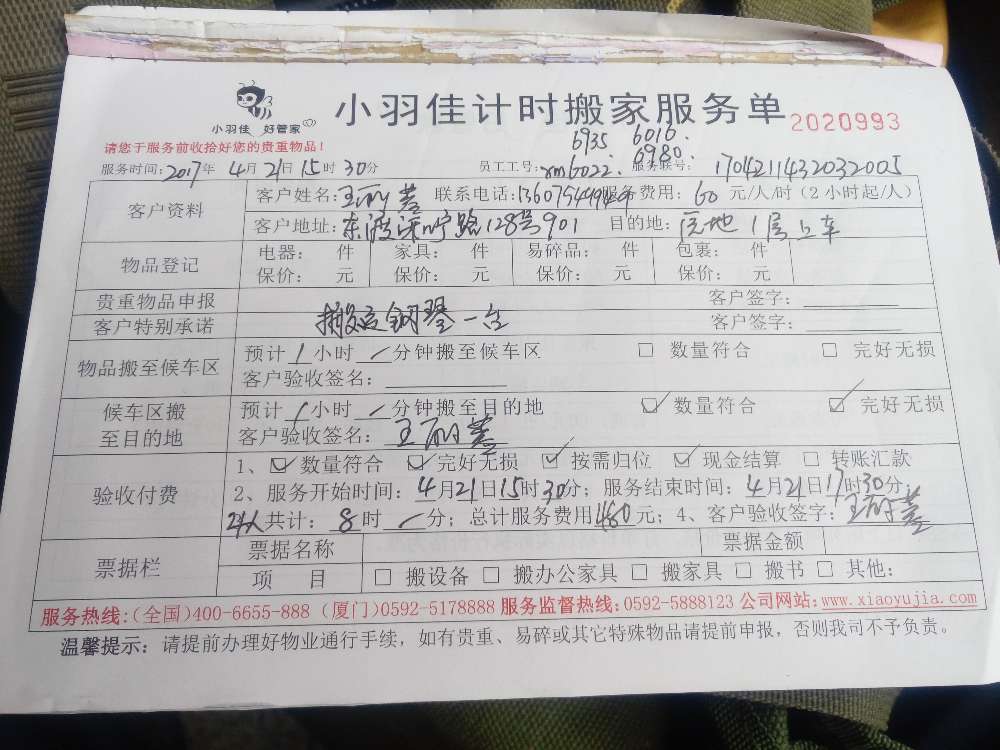 小羽佳计时搬家服务单
2020993
小羽佳 好管家
请您于服务前收拾好您的贵重物品！
6935 6016.
6980.
服务时间：2017年 4月 21日 15时 30分 员工工号：xm6022. 服务联号：1704211432032005
客户资料 客户姓名： 联系电话： 服务费用：60 元/人/时（2小时起/人）
客户地址：128号901 目的地：1层上车
物品登记 电器： 件 家具： 件 易碎品： 件 包裹： 件
保价： 元 保价： 元 保价： 元 保价： 元
贵重物品申报 客户签字：
客户特别承诺 搬运钢琴一台 客户签字：
物品搬至候车区 预计 1 小时 / 分钟搬至候车区 □ 数量符合 □ 完好无损
客户验收签名：
候车区搬至目的地 预计 1 小时 / 分钟搬至目的地 ☑ 数量符合 ☑ 完好无损
客户验收签名：
验收付费 1、☑ 数量符合 ☑ 完好无损 ☑ 按需归位 ☑ 现金结算 □ 转账汇款
2、服务开始时间：4月21日15时30分；服务结束时间：4月21日17时30分；
共计：8时 / 分；总计服务费用480元；4、客户验收签字：
票据栏 票据名称 票据金额
项 目 □ 搬设备 □ 搬办公家具 □ 搬家具 □ 搬书 □ 其他：
服务热线：(全国)400-6655-888 (厦门)0592-5178888 服务监督热线：0592-5888123 公司网站：www.xiaoyujia.com
温馨提示：请提前办理好物业通行手续，如有贵重、易碎或其它特殊物品请提前申报，否则我司不予负责。